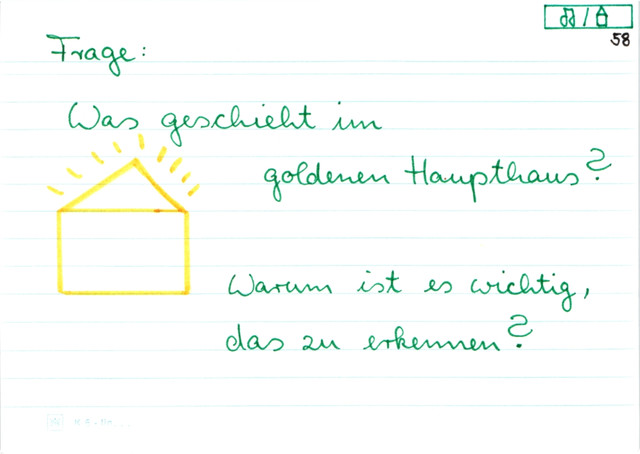 58
Frage:
Was geschieht im
goldenen Haupthaus?
Warum ist es wichtig,
das zu erkennen?